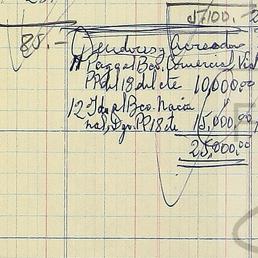 5,100.-
85.- Deudores y Acreedor
A Pagaré Bco. Comercial
PP. del 18 del cte. 10,000.00
12 Id. al Bco. Nacio
nal, Pgo. PP. 18 cte 15,000.00
25,000.00